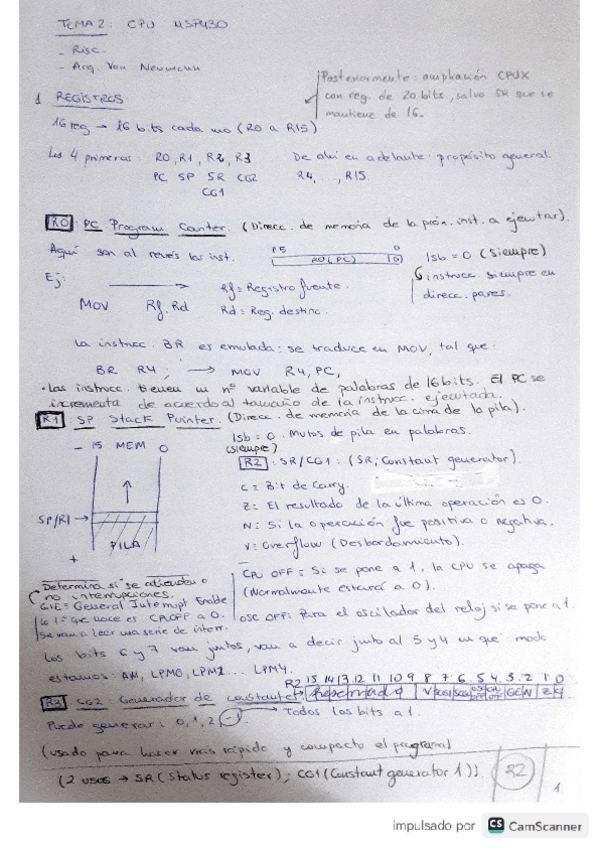 TEMA 2: CPU MSP430
- Risc.
- Arq. Von Neumann
Posteriormente: ampliación CPUX
con reg. de 20 bits, salvo SR que se
mantiene de 16.
1 REGISTROS
16 reg → 16 bits cada uno (R0 a R15)
Los 4 primeros: R0, R1, R2, R3 De ahí en adelante: propósito general.
PC SP SR CG2 R4, ..., R15.
CG1
R0: PC Program Counter. (Direcc. de memoria de la próx. inst. a ejecutar).
Aquí son al revés las inst.
15 0
R0 (PC) 0
lsb = 0 (siempre)
instrucc. siempre en
direcc. pares.
Ej:
Rf = Registro fuente.
MOV Rf, Rd Rd = Reg. destino.
La instrucc. BR es emulada: se traduce en MOV, tal que:
BR R4; → MOV R4, PC,
• Las instrucc. tienen un nº variable de palabras de 16 bits. El PC se
incrementa de acuerdo al tamaño de la instrucc. ejecutada.
R1 SP Stack Pointer. (Direcc. de memoria de la cima de la pila).
lsb = 0. Mutos de pila en palabras.
(siempre)
- 15 MEM 0
SP/R1 →
PILA
+
R2: SR/CG1: (SR, Constant generator).
C = Bit de Carry.
Z = El resultado de la última operación es 0.
N = Si la operación fue positiva o negativa.
V = Overflow (Desbordamiento).
CPU OFF: Si se pone a 1, la CPU se apaga
(Normalmente estará a 0).
OSC OFF: Para el oscilador del reloj si se pone a 1.
Determina si se atienden o
no interrupciones.
GIE = General Interrupt Enable
lo 1º que hace es CPUOFF a 0.
Se van a leer una serie de interr.
Los bits 6 y 7 van juntos, van a decir junto al 5 y 4 en que modo
estamos: AM, LPM0, LPM1 ... LPM4.
R2 15 14 13 12 11 10 9 8 7 6 5 4 3 2 1 0
Reservado V SCG1 SCG0 OSC OFF CPU OFF GIE N Z C
R3 CG2 Generador de constantes
Puede generar: 0, 1, 2, -1 → Todos los bits a 1.
(usado para hacer más rápido y compacto el programa)
(2 usos → SR (Status register); CG1 (Constant generator 1)). R2
1.
impulsado por CS CamScanner